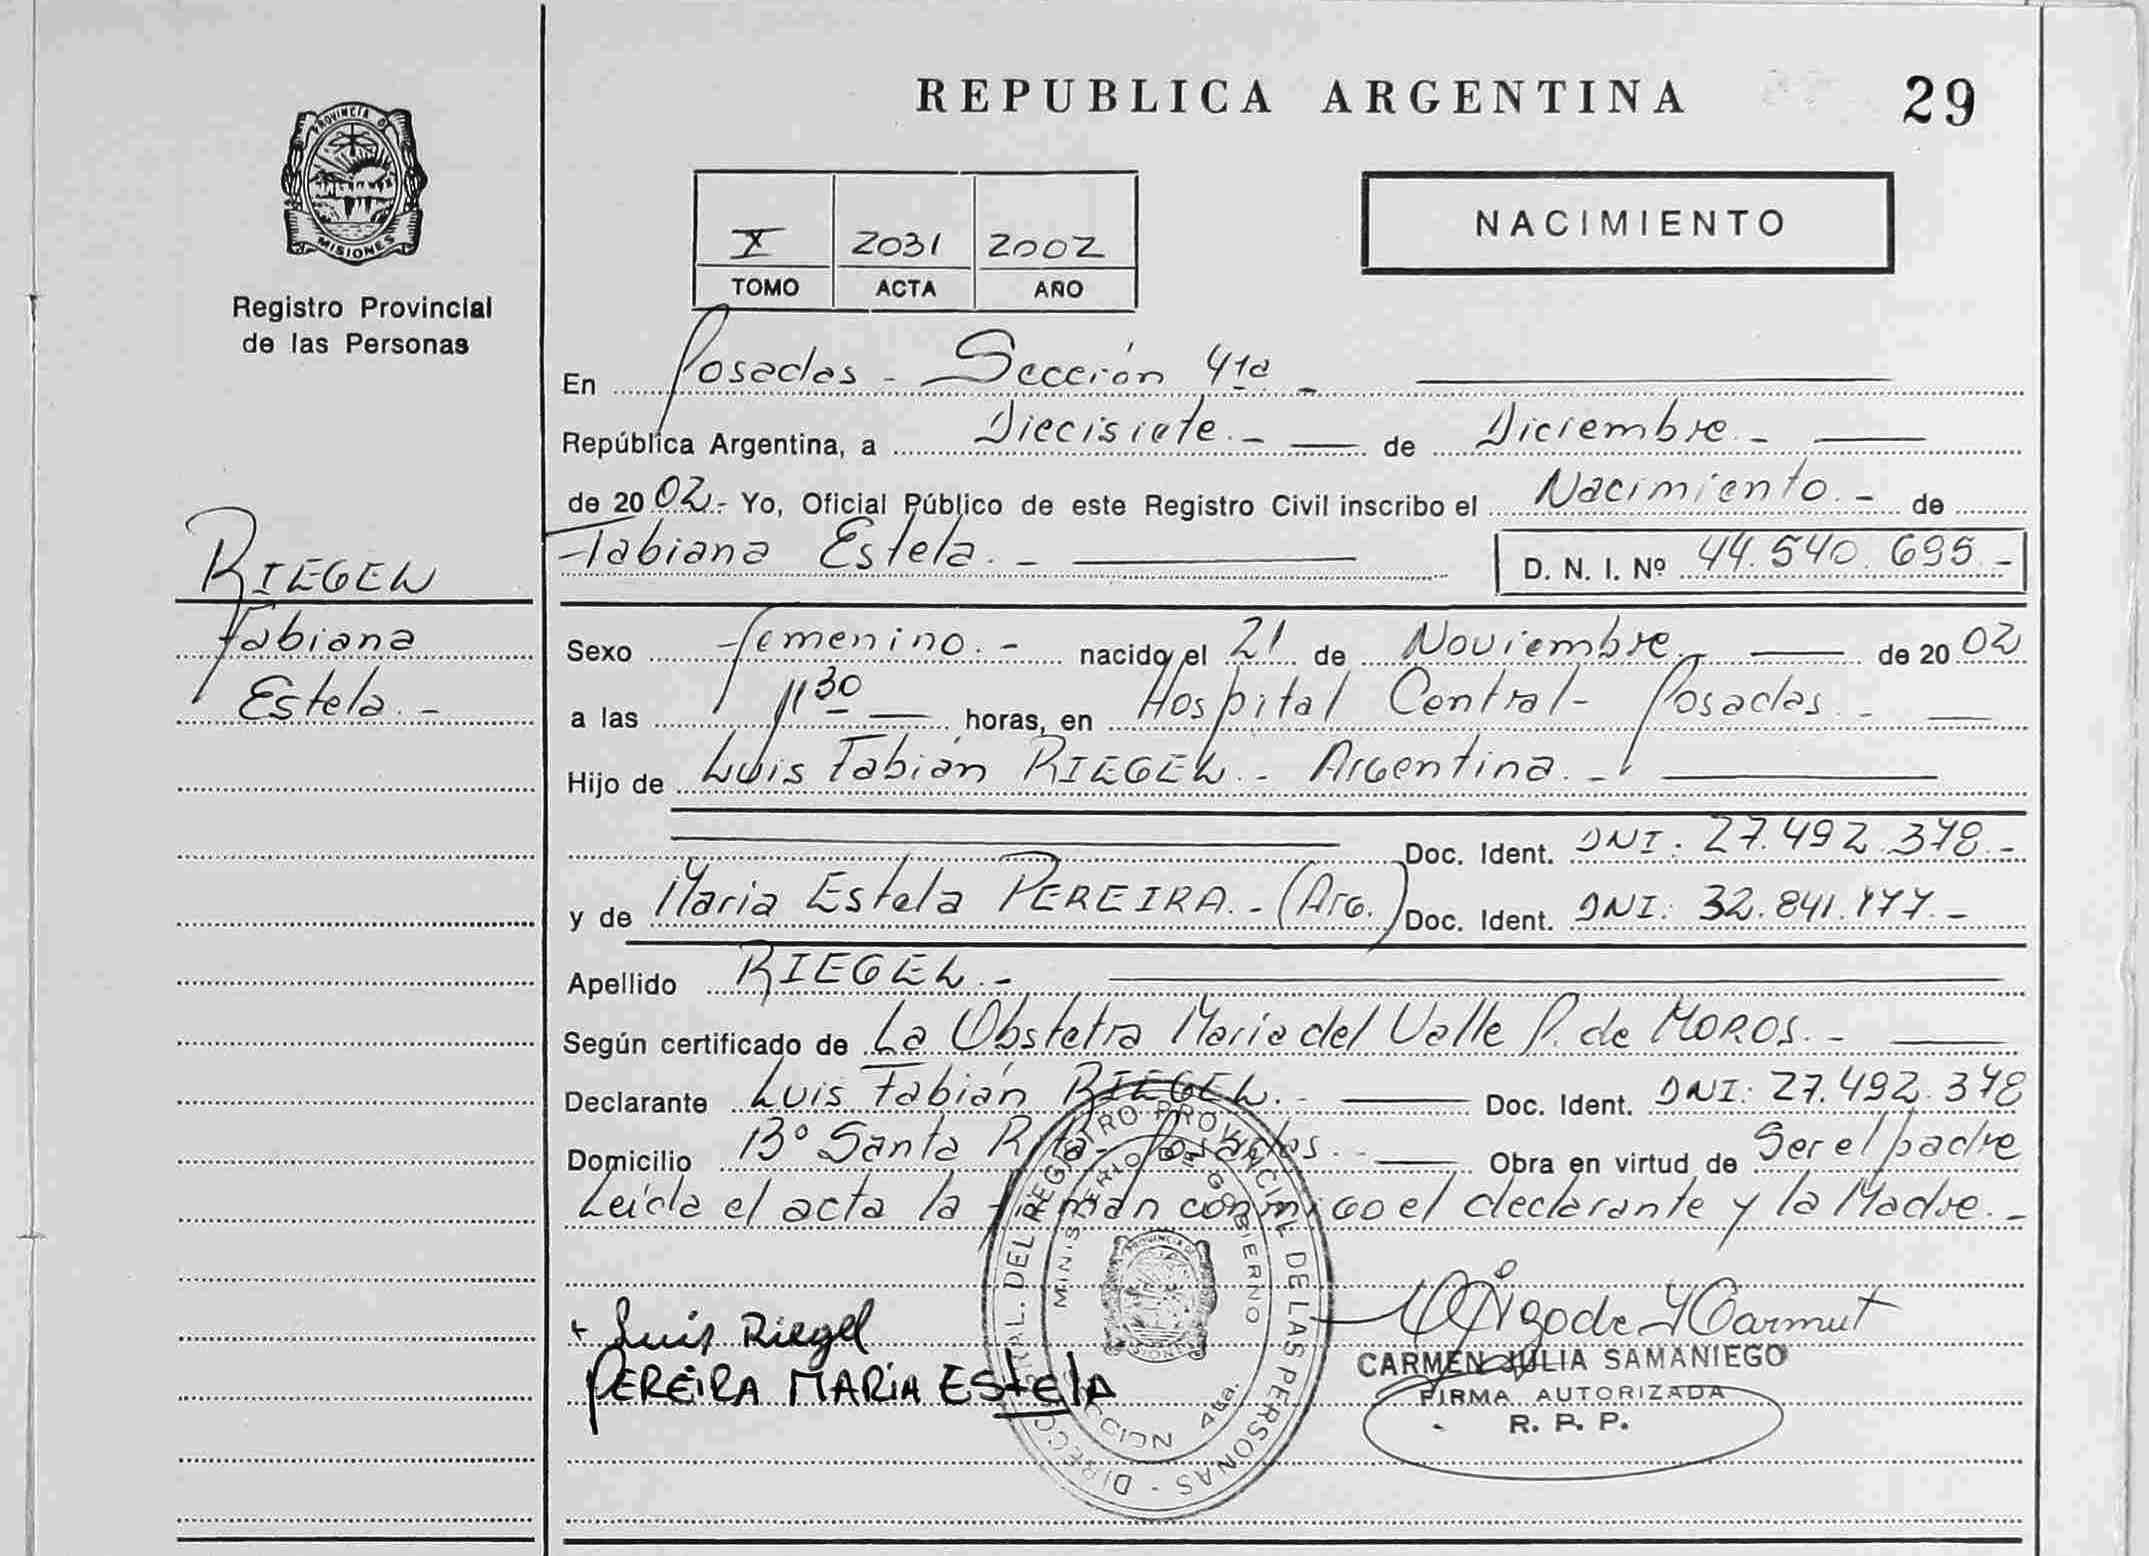 REPUBLICA ARGENTINA
29
PROVINCIA DE
MISIONES
Registro Provincial
de las Personas
X 2031 2002
TOMO ACTA AÑO
NACIMIENTO
En Posadas - Sección 4ta -
República Argentina, a Diecisiete.- de Diciembre.-
de 2002.- Yo, Oficial Público de este Registro Civil inscribo el Nacimiento.- de
Fabiana Estela.- D. N. I. Nº 44.540.695.-
RIEGEL
Fabiana
Estela.-
Sexo femenino.- nacido el 21 de Noviembre.- de 2002
a las 11 30 horas, en Hospital Central - Posadas.-
Hijo de Luis Fabián RIEGEL.- Argentina.-
Doc. Ident. DNI: 27.492.378.-
y de Maria Estela PEREIRA.- (Arg.) Doc. Ident. DNI: 32.841.177.-
Apellido RIEGEL.-
Según certificado de La Obstetra Maria del Valle P. de MOROS.-
Declarante Luis Fabián RIEGEL.- Doc. Ident. DNI: 27.492.378
Domicilio Bº Santa Rita - Posadas.- Obra en virtud de Ser el padre
Leída el acta la firman conmigo el declarante y la Madre.-
Luis Riegel
PEREIRA MARIA EStelA
DEL REGISTRO PROVINCIAL DE LAS PERSONAS
MINISTERIO DE GOBIERNO
PROVINCIA DE
MISIONES
4ta.
CARMEN JULIA SAMANIEGO
FIRMA AUTORIZADA
R. P. P.